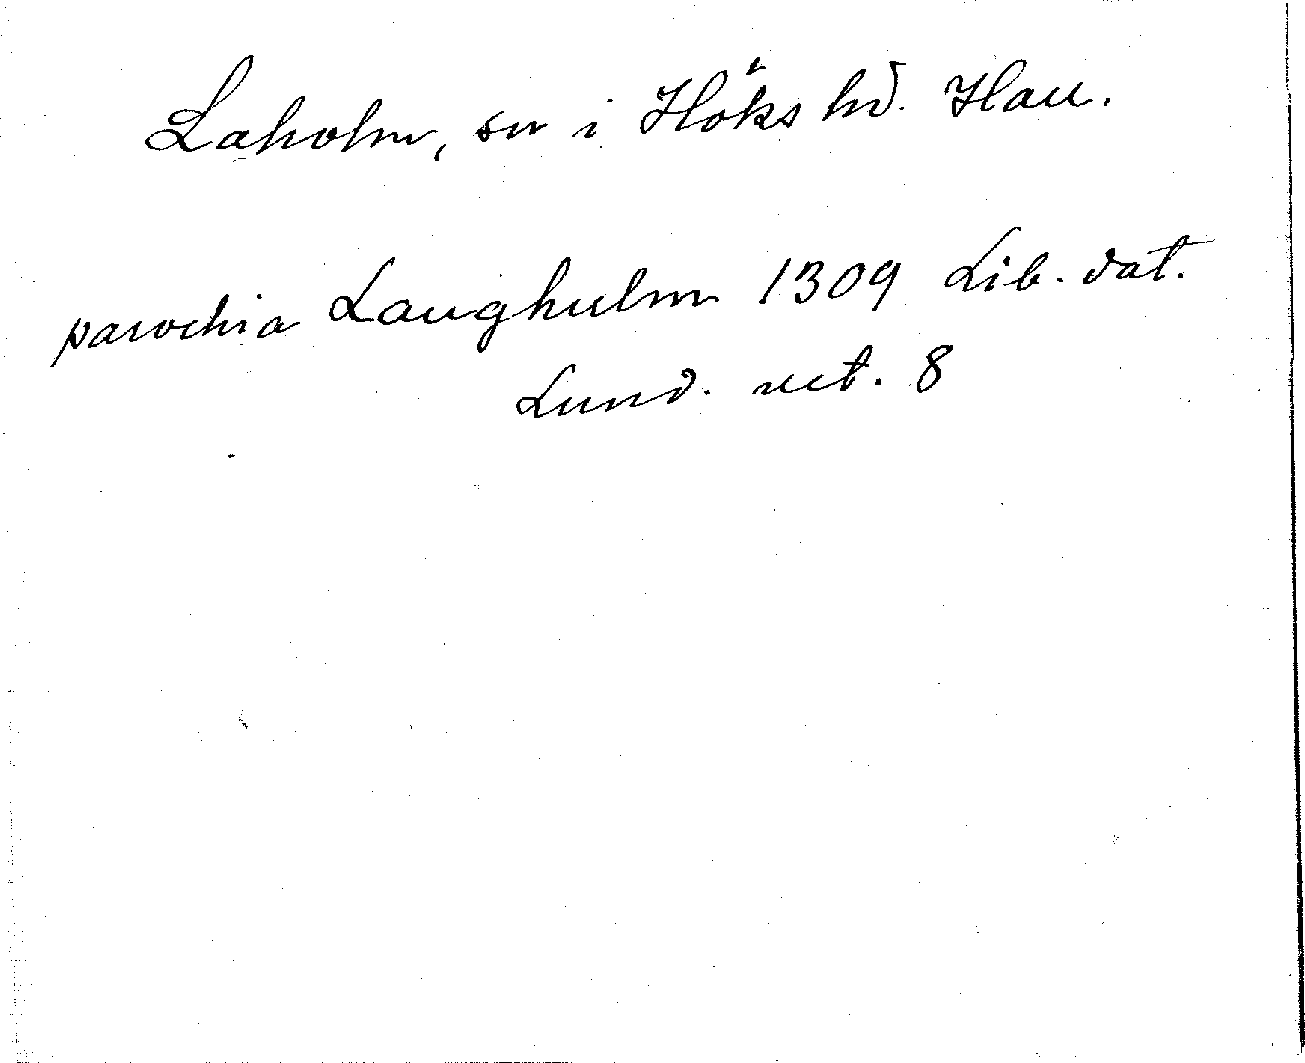 Laholm, sn i Höks hd. Hall.
parochia Laugholm 1309 Lib. dat.
Lund. vet. 8